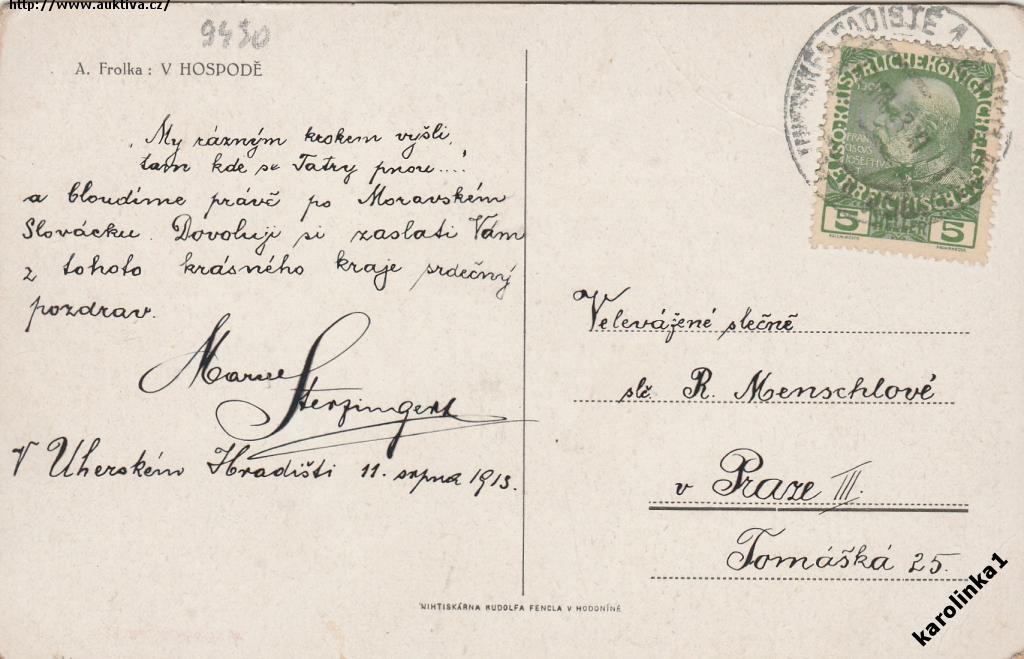 http://www.auktiva.cz/
9430
A. Frolka : V HOSPODĚ
„My rázným krokem vyšli,
tam kde se Tatry pnou....“
a bloudíme právě po Moravském
Slovácku. Dovoluji si zaslati Vám
z tohoto krásného kraje srdečný
pozdrav.
V Uherském Hradišti 11. srpna 1913.
HRADIŠTĚ 1
KAISERLICHE KÖNIGLICHE ÖSTERREICHISCHE
5 HELLER 5
Velevážené slečně
slč. R. Menschlové
v Praze III.
Tomášká 25.
MIHTISKÁRNA RUDOLFA FENCLA V HODONÍNĚ
karolinka1